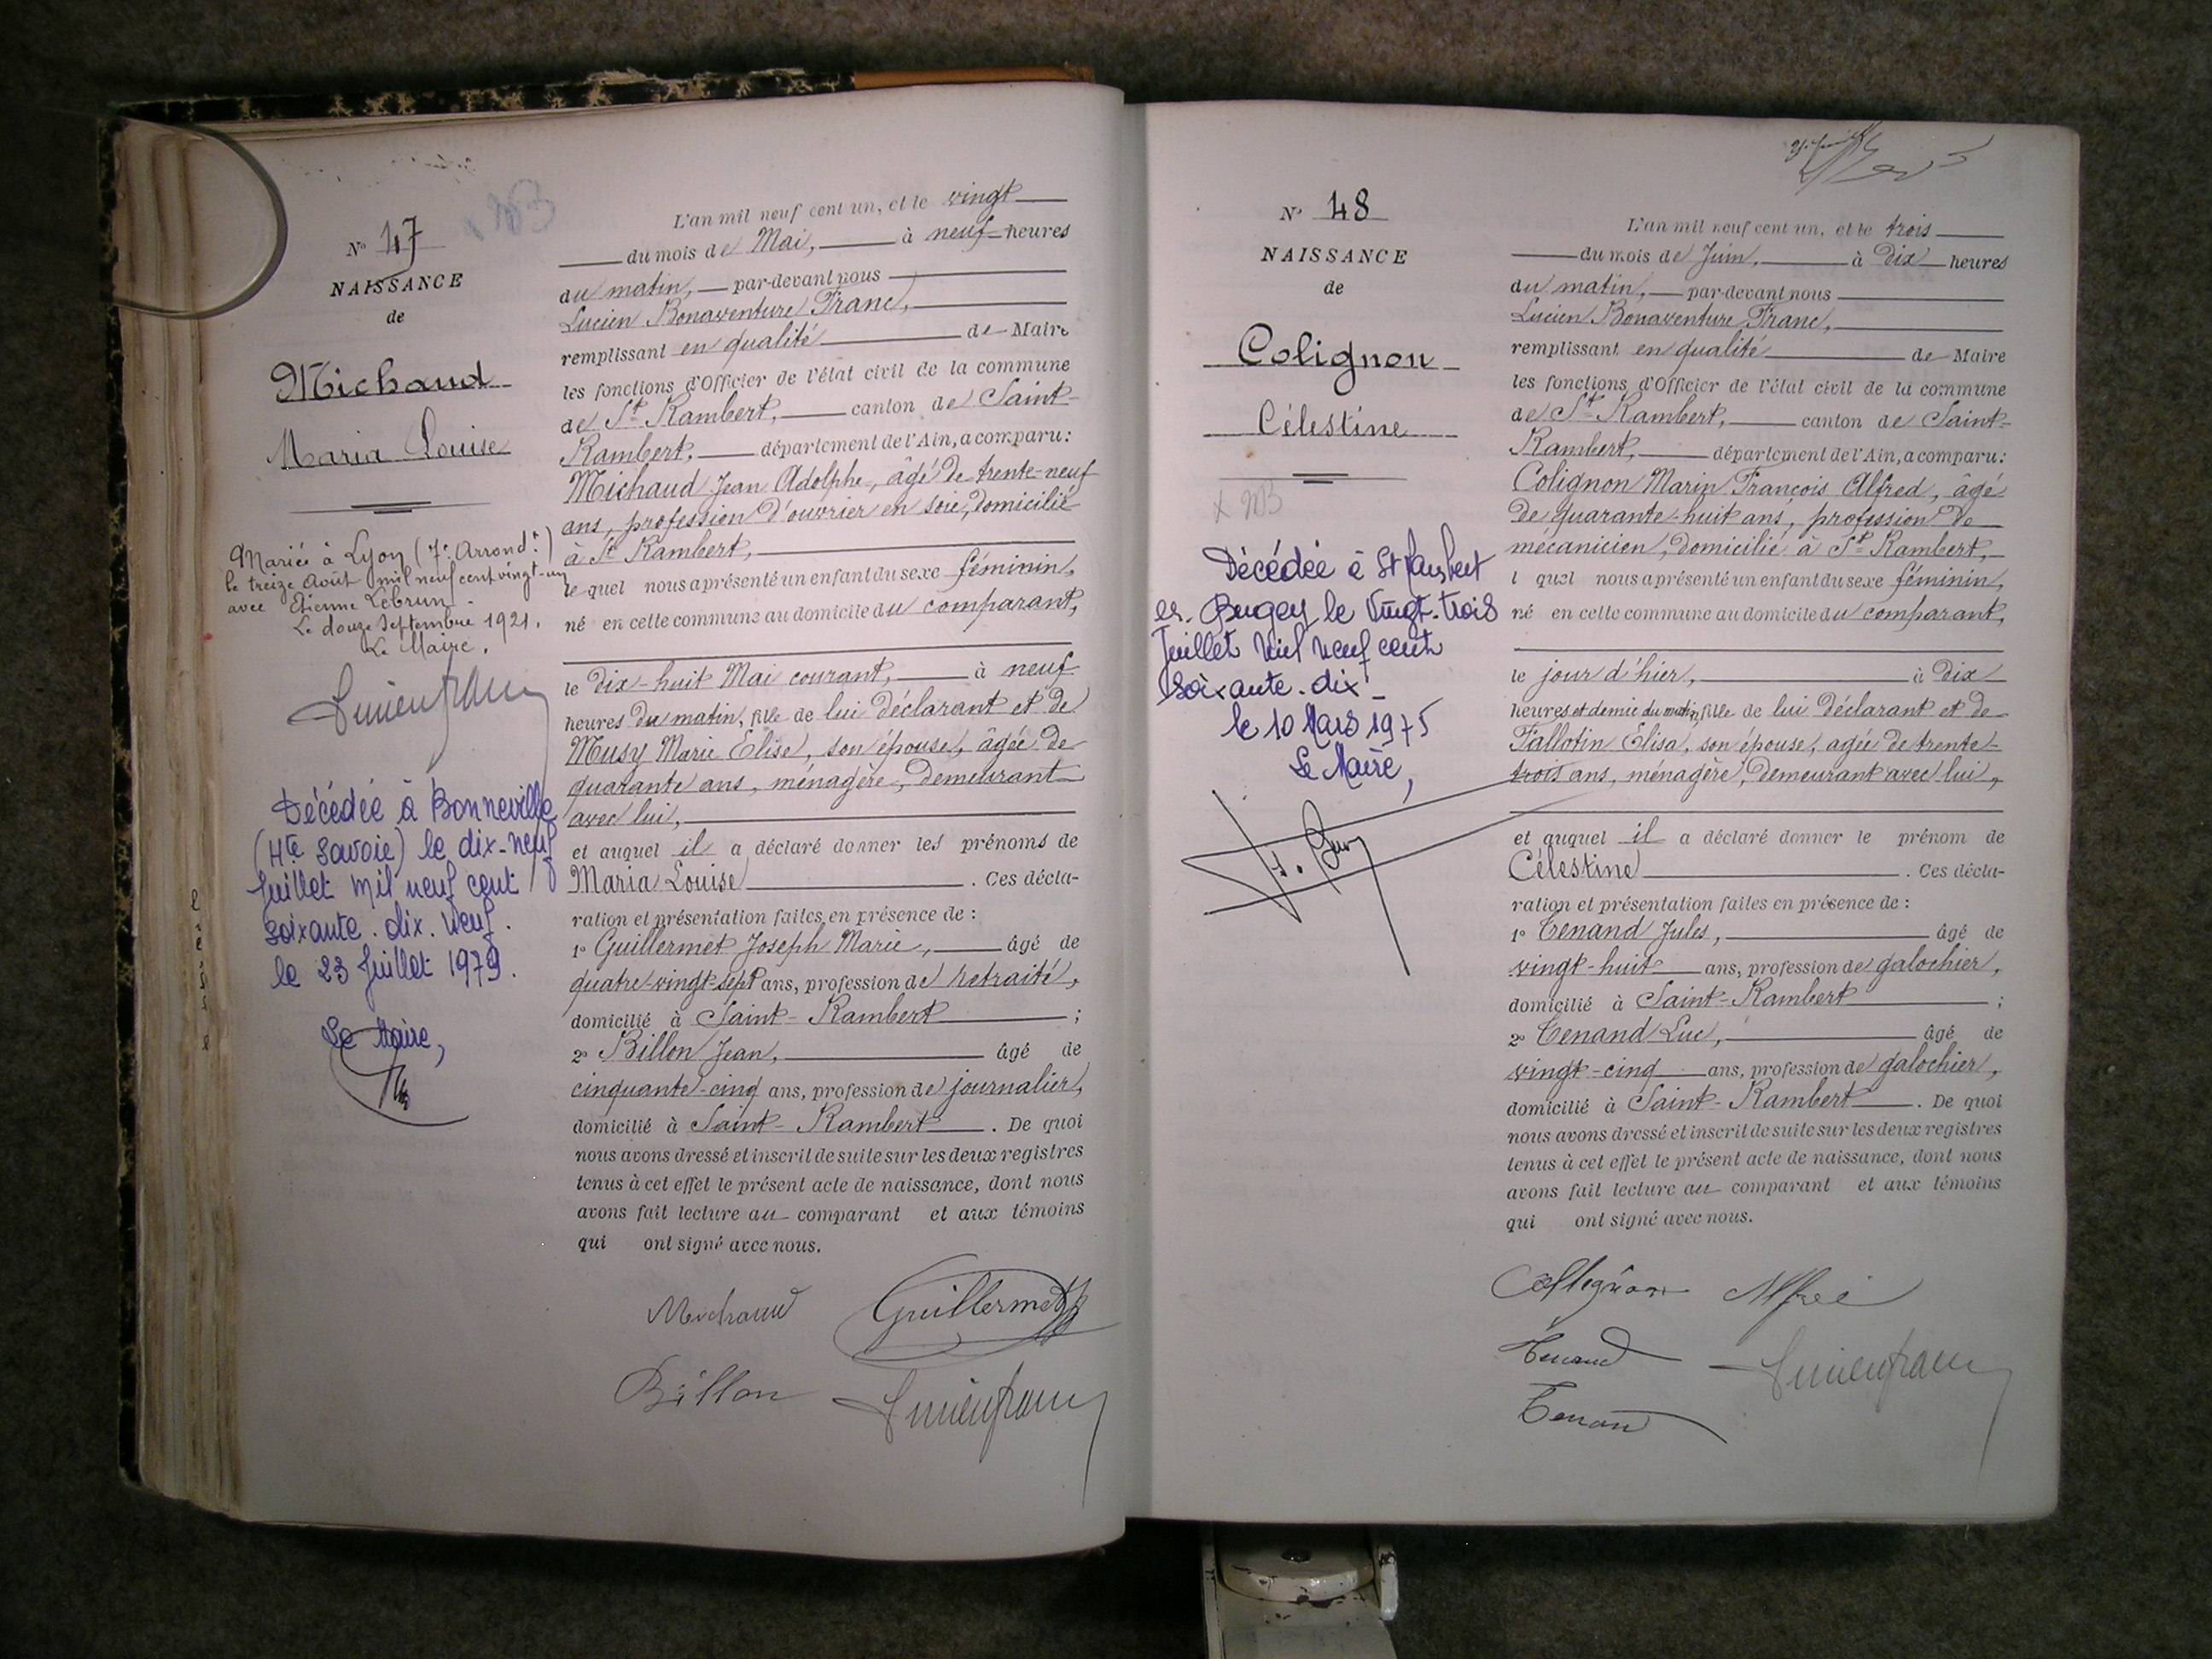 N° 47
NAISSANCE
de
Michaud
Maria Louise
Mariée à Lyon (7e Arrondt)
le treize Août mil neuf cent vingt-un
avec Etienne Lebrun.
Le douze Septembre 1921.
Le Maire.
Lucien Franc
Décédée à Bonneville
(Hte Savoie) le dix-neuf
Juillet mil neuf cent
soixante.dix.neuf.
le 23 Juillet 1979.
Le Maire,
L'an mil neuf cent un, et le vingt
du mois de Mai, à neuf heures
du matin, par-devant nous
Lucien Bonaventure Franc,
remplissant en qualité de Maire
les fonctions d'Officier de l'état civil de la commune
de St Rambert, canton de Saint-
Rambert, département de l'Ain, a comparu:
Michaud Jean Adolphe, âgé de trente-neuf
ans, profession d'ouvrier en soie, domicilié
à St Rambert,
le quel nous a présenté un enfant du sexe féminin,
né en cette commune au domicile du comparant,
le dix-huit Mai courant, à neuf
heures du matin, fille de lui déclarant et de
Musy Marie Elise, son épouse, âgée de
quarante ans, ménagère, demeurant
avec lui,
et auquel il a déclaré donner les prénoms de
Maria Louise. Ces décla-
ration et présentation faites en présence de :
1° Guillermet Joseph Marie, âgé de
quatre-vingt-sept ans, profession de retraité,
domicilié à Saint-Rambert ;
2° Billon Jean, âgé de
cinquante-cinq ans, profession de journalier,
domicilié à Saint-Rambert. De quoi
nous avons dressé et inscrit de suite sur les deux registres
tenus à cet effet le présent acte de naissance, dont nous
avons fait lecture au comparant et aux témoins
qui ont signé avec nous.
Michaud Guillermet
Billon Lucien Franc
N° 48
NAISSANCE
de
Colignon
Célestine
Décédée à St Rambert
en-Bugey le vingt-trois
Juillet mil neuf cent
soixante.dix
le 10 Mars 1975
Le Maire,
L'an mil neuf cent un, et le trois
du mois de Juin, à dix heures
du matin, par-devant nous
Lucien Bonaventure Franc,
remplissant en qualité de Maire
les fonctions d'Officier de l'état civil de la commune
de St Rambert, canton de Saint-
Rambert, département de l'Ain, a comparu:
Colignon Marin François Alfred, âgé
de quarante-huit ans, profession de
mécanicien, domicilié à St Rambert,
l quel nous a présenté un enfant du sexe féminin,
né en cette commune au domicile du comparant,
le jour d'hier, à dix
heures et demie du matin, fille de lui déclarant et de
Tallotin Elisa, son épouse, agée de trente-
trois ans, ménagère, demeurant avec lui,
et auquel il a déclaré donner le prénom de
Célestine. Ces décla-
ration et présentation faites en présence de :
1° Tenand Jules, âgé de
vingt-huit ans, profession de galochier,
domicilié à Saint-Rambert ;
2° Tenand Luc, âgé de
vingt-cinq ans, profession de galochier,
domicilié à Saint-Rambert. De quoi
nous avons dressé et inscrit de suite sur les deux registres
tenus à cet effet le présent acte de naissance, dont nous
avons fait lecture au comparant et aux témoins
qui ont signé avec nous.
Collignon Alfred
Tenand Lucien Franc
Tenand